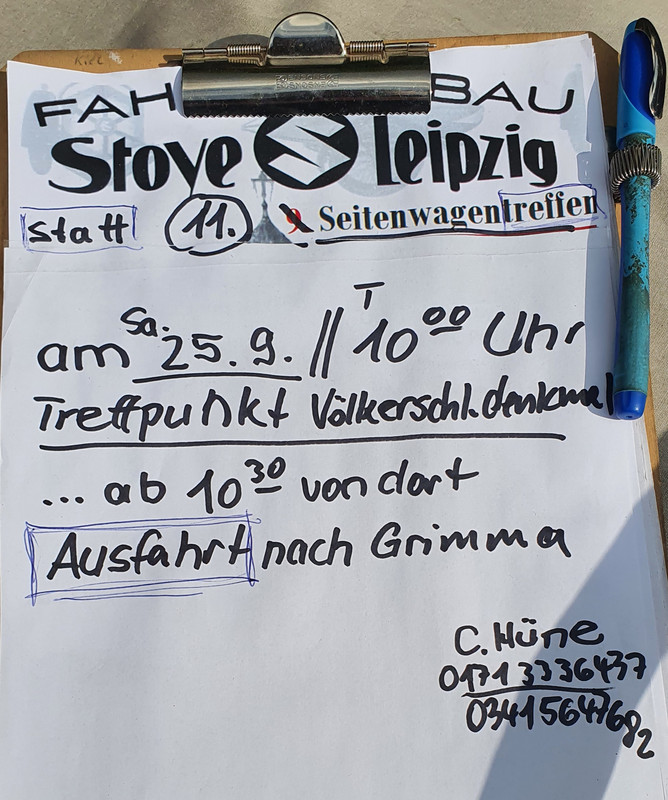 Kill
FAH BAU
Stoye Leipzig
statt 11. 9. Seitenwagentreffen
am Sa. 25. 9. // T 10 00 Uhr
Treffpunkt Völkerschl.denkmal
... ab 10 30 von dort
Ausfahrt nach Grimma
C. Hüne
0171 3336437
03415647682